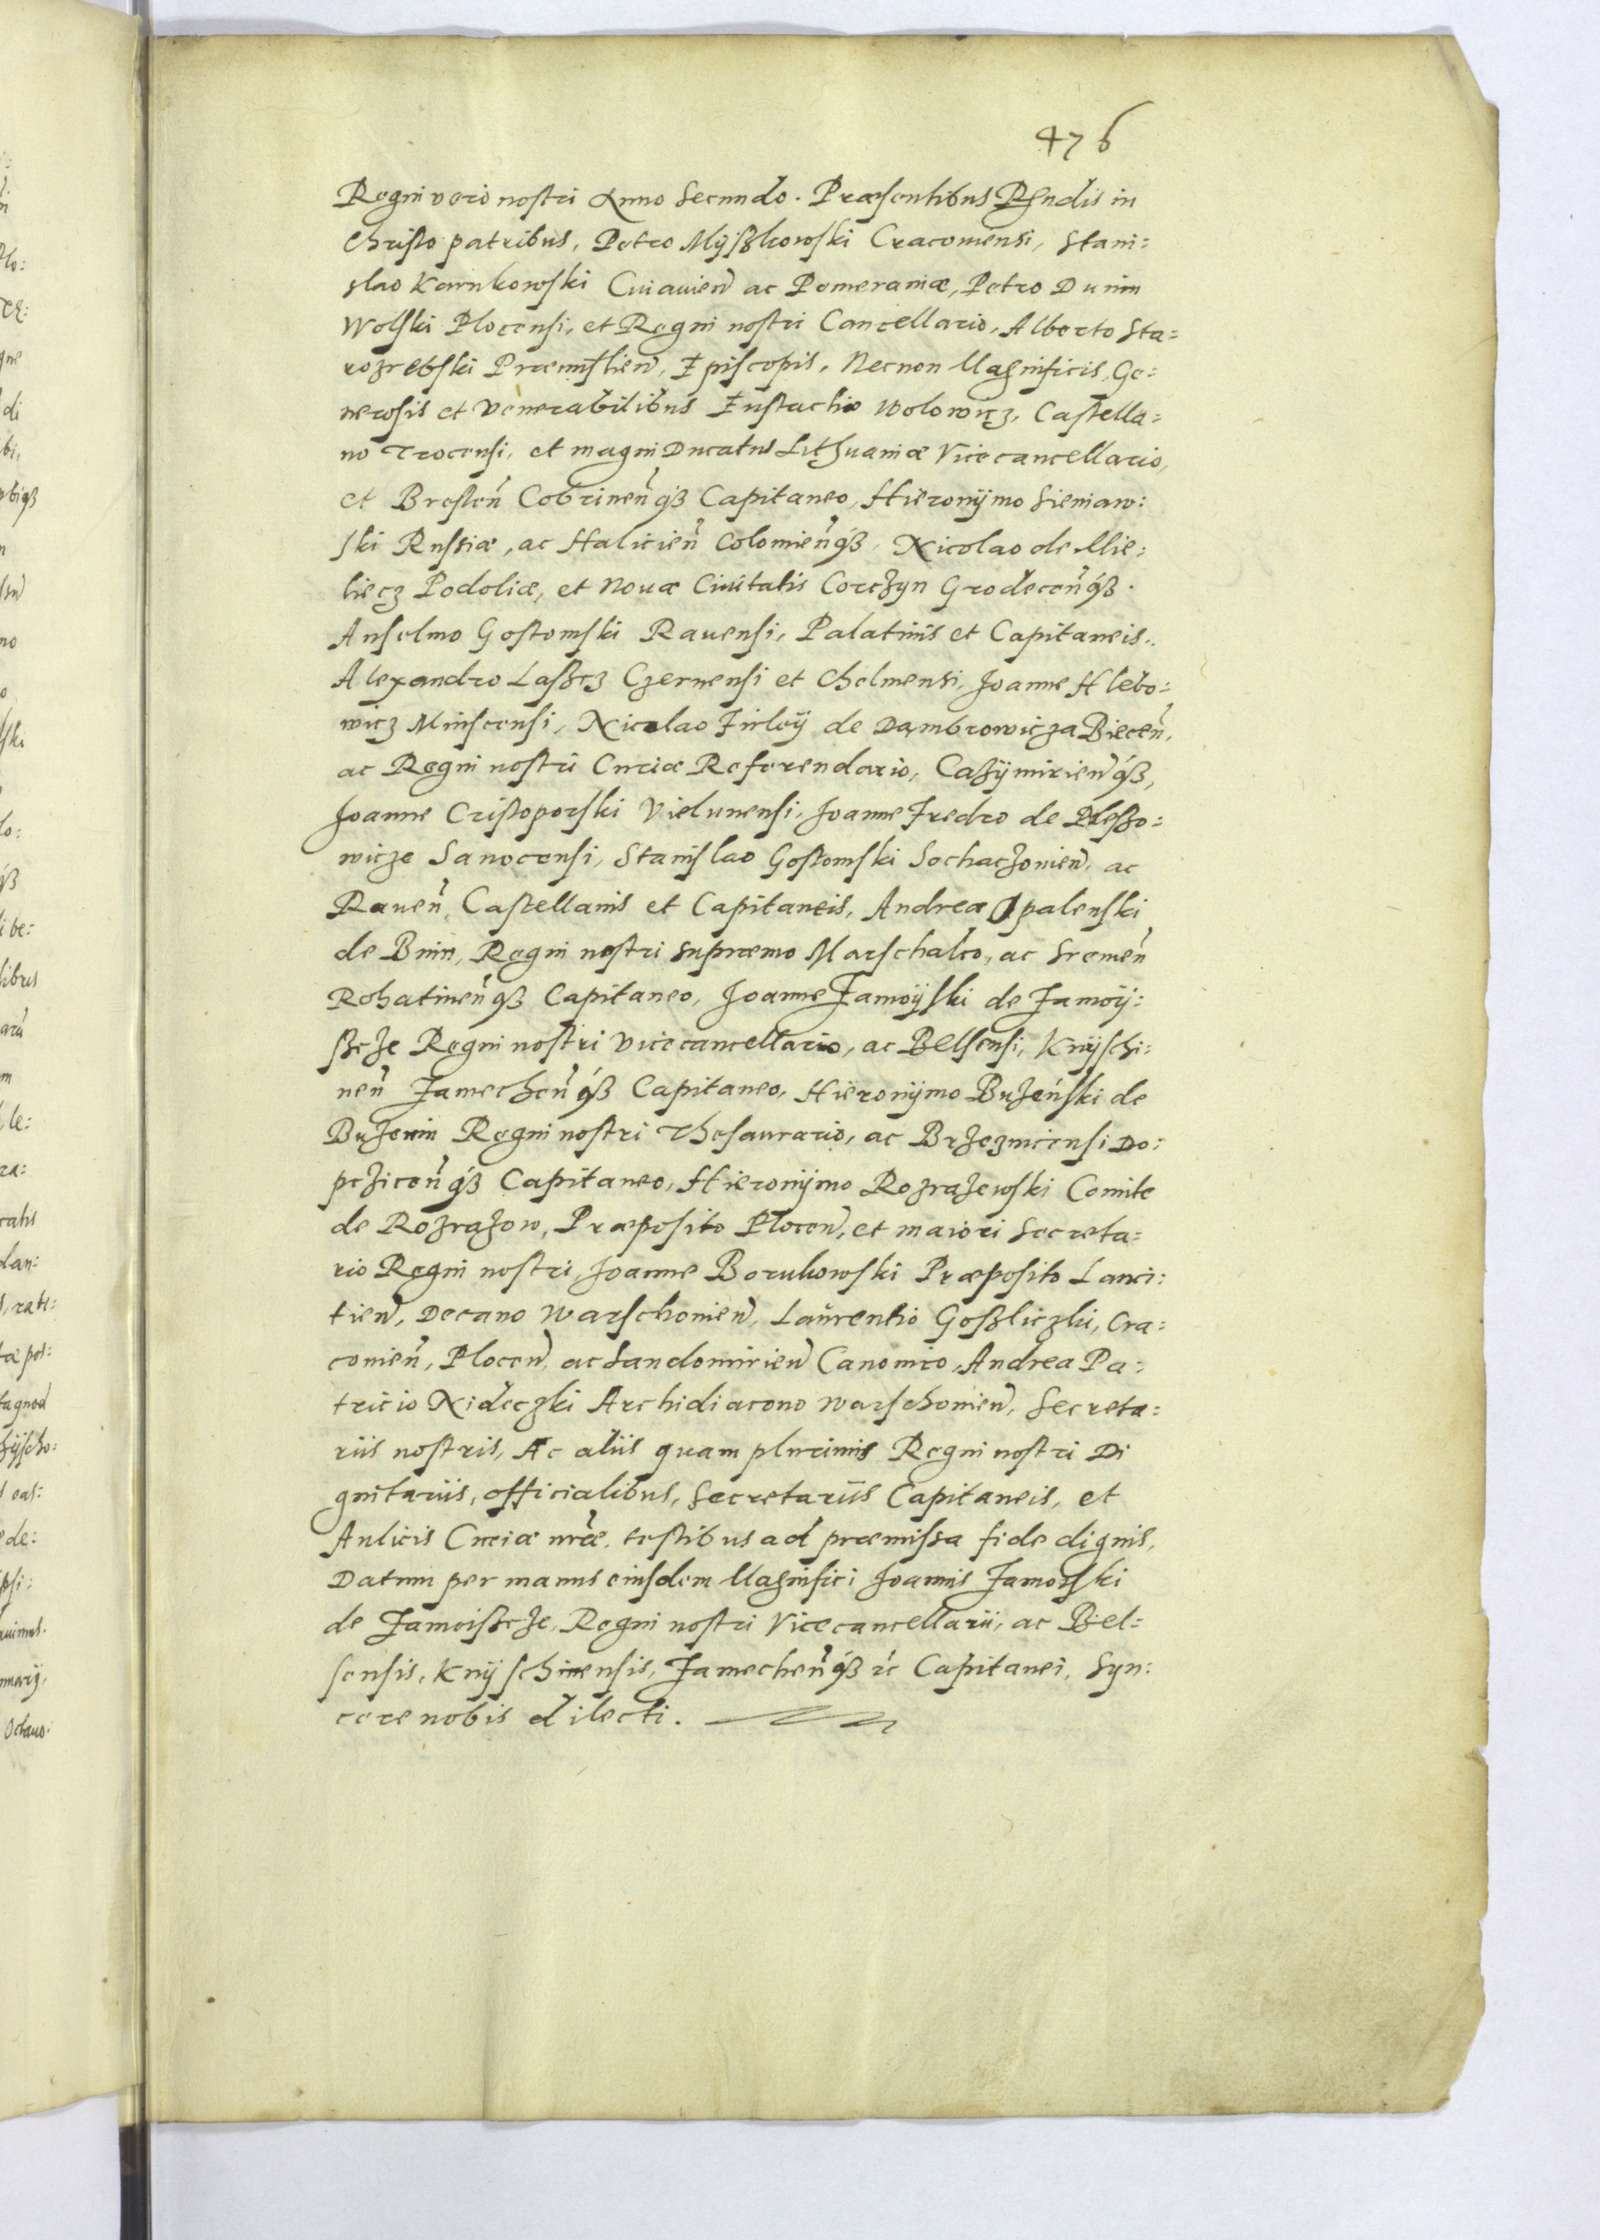 476
Regni vero nostri Anno Secundo. Præsentibus Rndis in
Christo patribus, Petro Myßkowski Cracoviensi, Stani:
slao Karnkowski Cuiavien̄ ac Pomeraniæ, Petro Dunin
Wolski Plocensi, et Regni nostri Cancellario, Alberto Sta:
rozrebski Præmislien̄, Episcopis, Necnon Magnificis, Ge:
nerosis et Venerabilibus Eustachio Wolowicz, Castella:
no Trocensi, et magni Ducatus Lithuaniæ Vicecancellario,
et Bresten̄ Cobrinen̄qß Capitaneo, Hieronÿmo Sieniaw:
ski Russiæ, ac Halicien̄ Colomien̄qß, Nicolao de Mie:
liecz Podoliæ, et Novæ Civitatis Corczyn Grodecen̄qß.
Anselmo Gostomski Ravensi, Palatinis et Capitaneis.
Alexandro Laßcz Czernensi et Chelmensi, Joanne Hlebo:
wicz Minscensi, Nicolao Firleÿ de Dambrowicza Biecen̄,
ac Regni nostri Curiæ Referendario, Cazÿmirien̄qß,
Joanne Cristoporski Vielunensi, Joanne Fredro de Pleßo:
wicze Sanocensi, Stanislao Gostomski Sochaczovien̄, ac
Raven̄, Castellanis et Capitaneis, Andrea Opalenski
de Bnin, Regni nostri supremo Marschalco, ac Sremen̄
Rohatinen̄qß Capitaneo, Joanne Zamoÿski de Zamoÿ:
ßcze Regni nostri Vicecancellario, ac Belsensi, Knÿschi:
nen̄ Zamechen̄qß Capitaneo, Hieronÿmo Bużeński de
Buzenin Regni nostri Thesaurario, ac Brzeznicensi Do:
pcziцen̄qß Capitaneo, Hieronÿmo Rozrazewski Comite
de Rozrazow, Præposito Plocen̄, et maiori Secreta:
rio Regni nostri, Joanne Borukowski Præposito Lanci:
tien̄, Decano Warschovien̄, Laurentio Goßliczki, Cra:
covien̄, Plocen̄, ac Sandomirien̄ Canonico, Andrea Pa:
tricio Nideczki Archidiacono Warschovien̄, Secreta:
riis nostris, Ac aliis quam plurimis Regni nostri Di
gnitariis, officialibus, Secretariis Capitaneis, et
Aulicis Curiæ nr̄æ, testibus ad præmissa fide dignis,
Datum per manus eiusdem Magnifici Joannis Zamoiski
de Zamoißcze, Regni nostri Vicecancellarii, ac Bel:
sensis, Knÿschinensis, Zamechen̄qß ɾc Capitanei, Syn:
cere nobis dilecti.